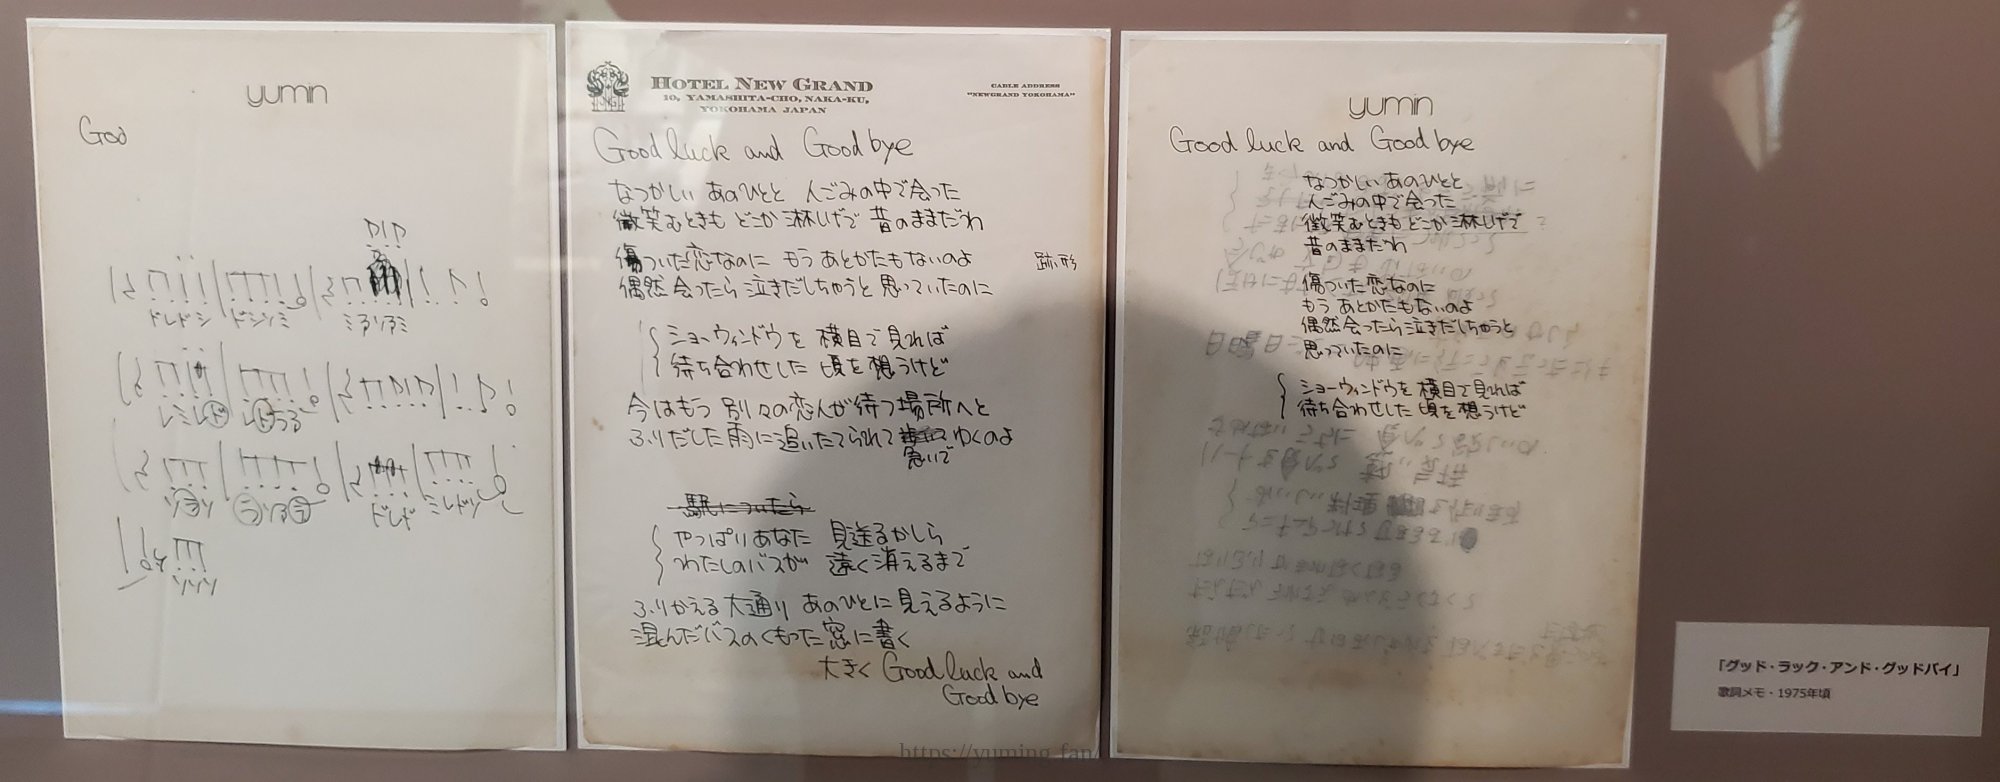 yumin
God
ドレドシ ドシソミ ミファソファミ
レミレド
ドレド ミレドソ
ソソソ
HOTEL NEW GRAND
10, YAMASHITA-CHO, NAKA-KU,
YOKOHAMA JAPAN
CABLE ADDRESS
"NEWGRAND YOKOHAMA"
Good luck and Good bye
なつかしい あのひとと 人ごみの中で会った
微笑むときも どこか淋しげで 昔のままだわ
傷ついた恋なのに もう あとかたもないのよ 跡形
偶然 会ったら 泣きだしちゃうと 思っていたのに
ショーウィンドウを 横目で見れば
待ち合わせした 頃を想うけど
今はもう 別々の恋人が待つ場所へと
ふりだした雨に追いたてられて ゆくのよ
急いで
駅についたら
やっぱりあなた 見送るかしら
わたしのバスが 遠く消えるまで
ふりかえる大通り あのひとに見えるように
混んだバスのくもった窓に書く
大きく Good luck and
Good bye
yumin
Good luck and Good bye
なつかしい あのひとと
人ごみの中で会った
微笑むときも どこか淋しげで
昔のままだわ
傷ついた恋なのに
もう あとかたもないのよ
偶然会ったら泣きだしちゃうと
思っていたのに
ショーウィンドウを 横目で見れば
待ち合わせした 頃を想うけど
「グッド・ラック・アンド・グッドバイ」
歌詞メモ・1975年頃
https://yuming.fan/